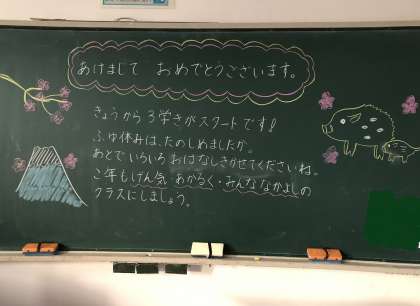 あけまして おめでとうございます。
きょうから3学きがスタートです!
ふゆ休みは、たのしめましたか。
あとでいろいろおはなしきかせてくださいね。
こ年もげん気・あかるく・みんななかよしの
クラスにしましょう。